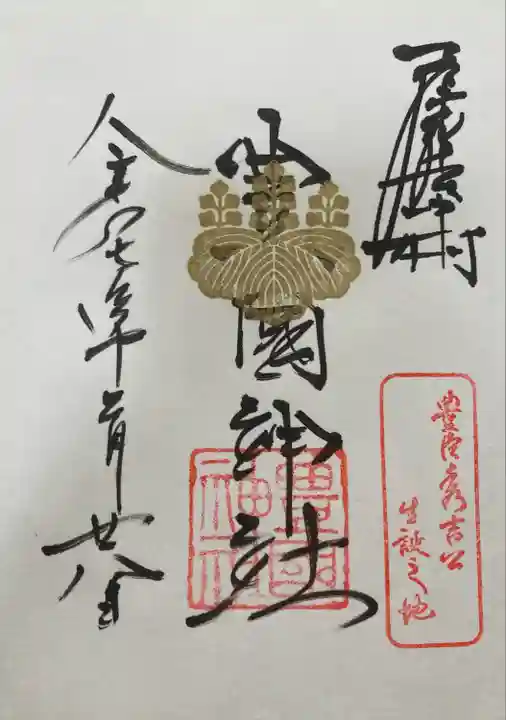 尾張中村
豊臣秀吉公
生誕之地
豊國神社
豊國神社
令和七年二月廿八日